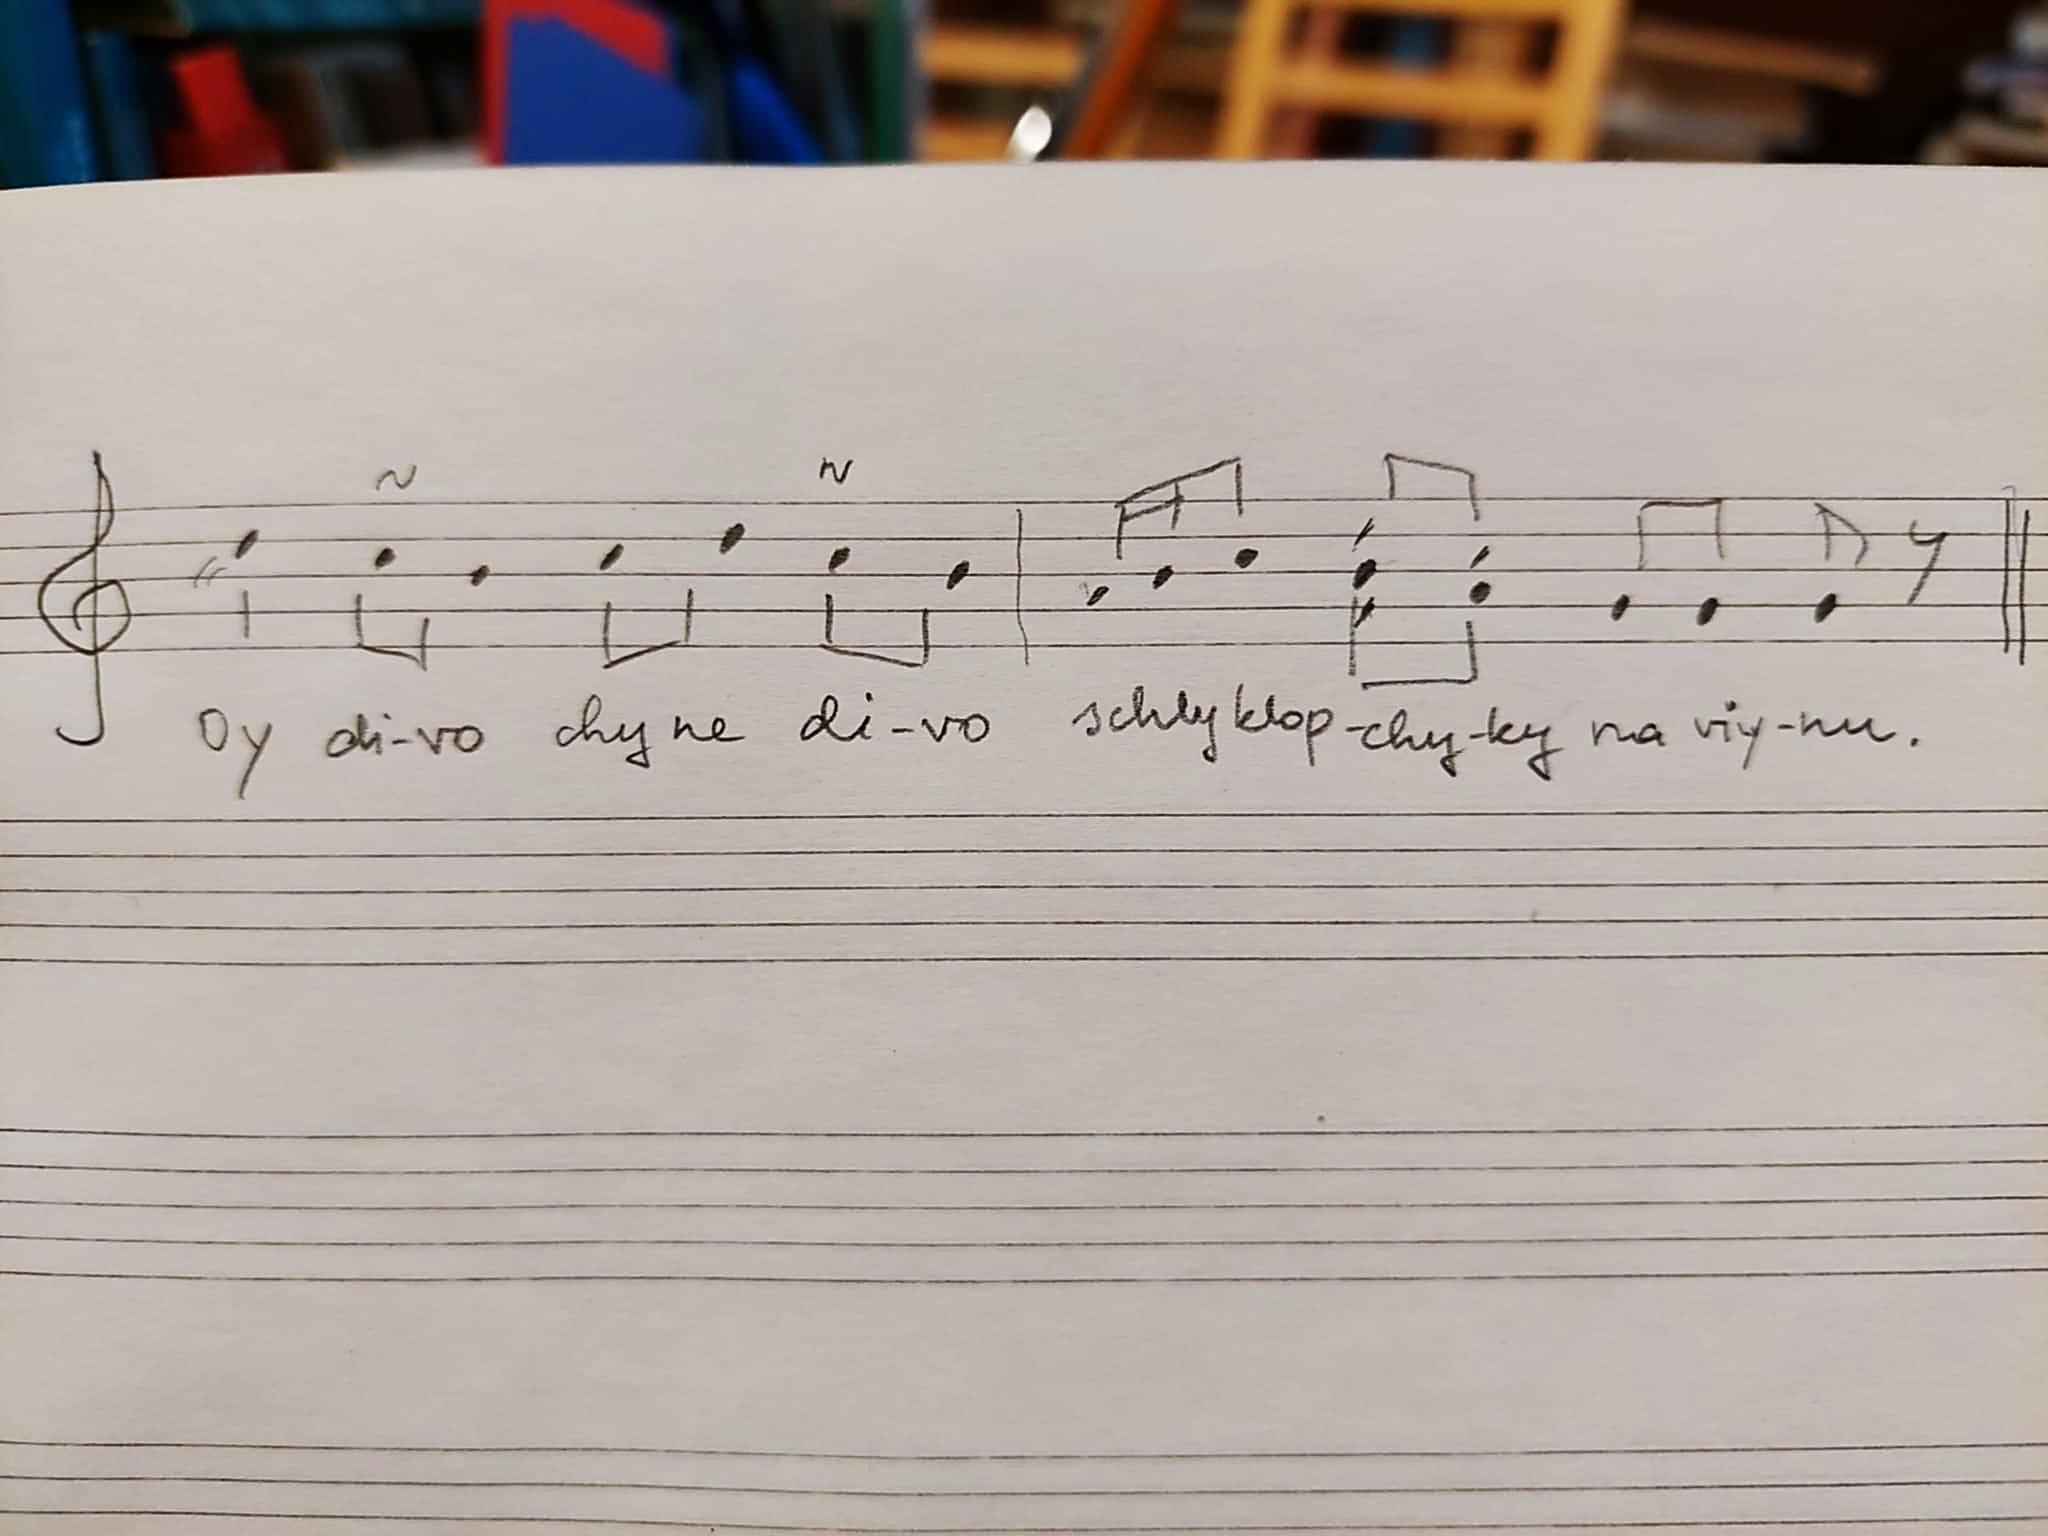 Oy di-vo chy ne di-vo schly klop-chy-ky na viy-nu.